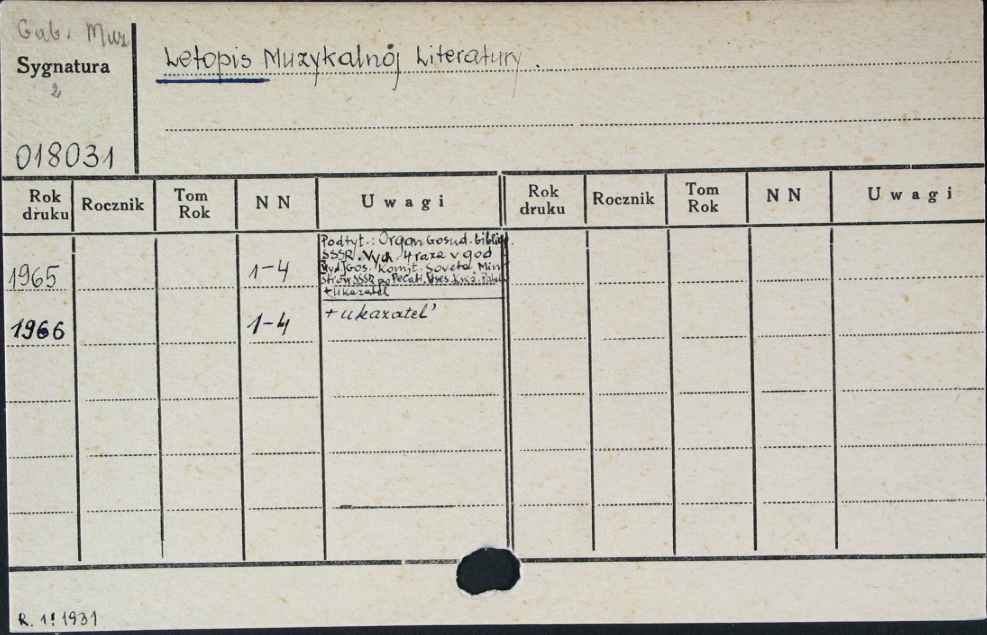 Gab. Muz
Sygnatura
2
018031
Letopis Muzykalnój Literatury.
Rok druku
Rocznik
Tom Rok
NN
Uwagi
Rok druku
Rocznik
Tom Rok
NN
Uwagi
1965
1-4
Podtyt.: Organ Gosud. bibliogr.
SSSR. Vych. 4 raza v god
Wyd. Gos. Komit. Soveta Mini
strov SSSR po Pečati. Vses.
+ukazatel
1966
1-4
+ukazatel'
R. 1! 1931